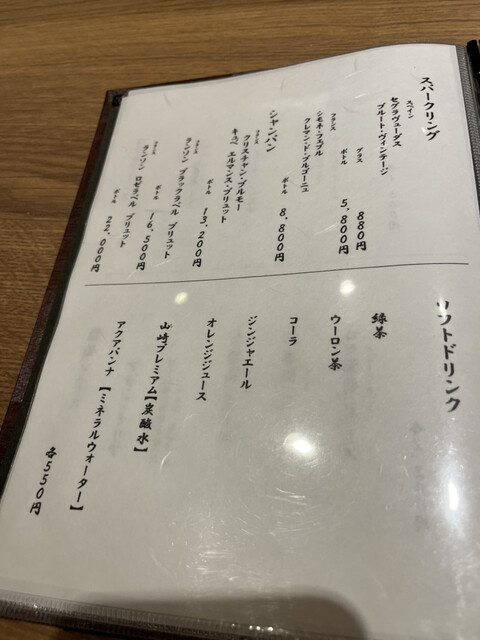 スパークリング
スペイン
セグラヴューダス
ブルート・ヴィンテージ
グラス 880円
ボトル 5,800円
フランス
シモネ・フェブル
クレマン・ド・ブルゴーニュ
ボトル 8,800円
シャンパン
フランス
クリスチャン・ブルモー
キュベ エルマンス・ブリュット
ボトル 13,200円
フランス
ランソン ブラックラベル ブリュット
ボトル 16,500円
フランス
ランソン ロゼラベル ブリュット
ボトル 22,000円
ソフトドリンク
緑茶
ウーロン茶
コーラ
ジンジャエール
オレンジジュース
山崎プレミアム【炭酸水】
アクアパンナ【ミネラルウォーター】
各550円